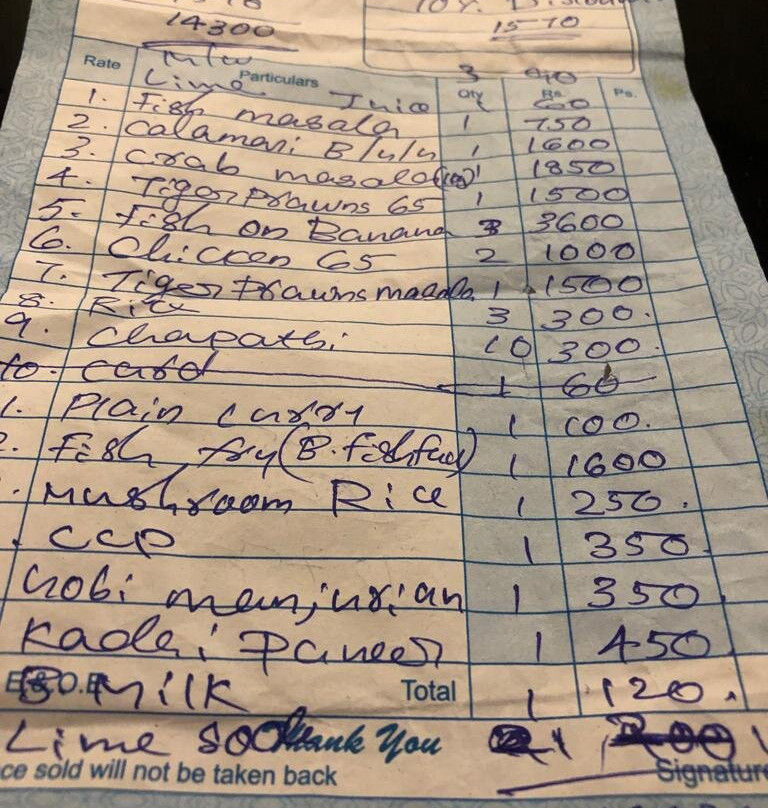 14300
10%
15-70
M/w 3 90
Rate Particulars Qty Rs. Ps.
Lime Juice 60
1. Fish masala 1 750
2. Calamari B/u/u 1 1600
3. Crab masala 1 1850
4. Tiger Prawns 65 1 1500
5. Fish on Banana 3 3600
6. Chicken 65 2 1000
7. Tiger Prawns masala 1 1500
8. Rice 3 300.
9. Chapathi 10 300.
10. curd 1 60
1. Plain curry 1 100.
2. Fish fry (B. fish full) 1 1600
. Mushroom Rice 1 250.
. CCP 1 350.
Gobi manjurian 1 350
Kadai Paneer 1 450
E&O.E Milk Total 1 120.
Lime soda Thank You 1
ce sold will not be taken back Signature